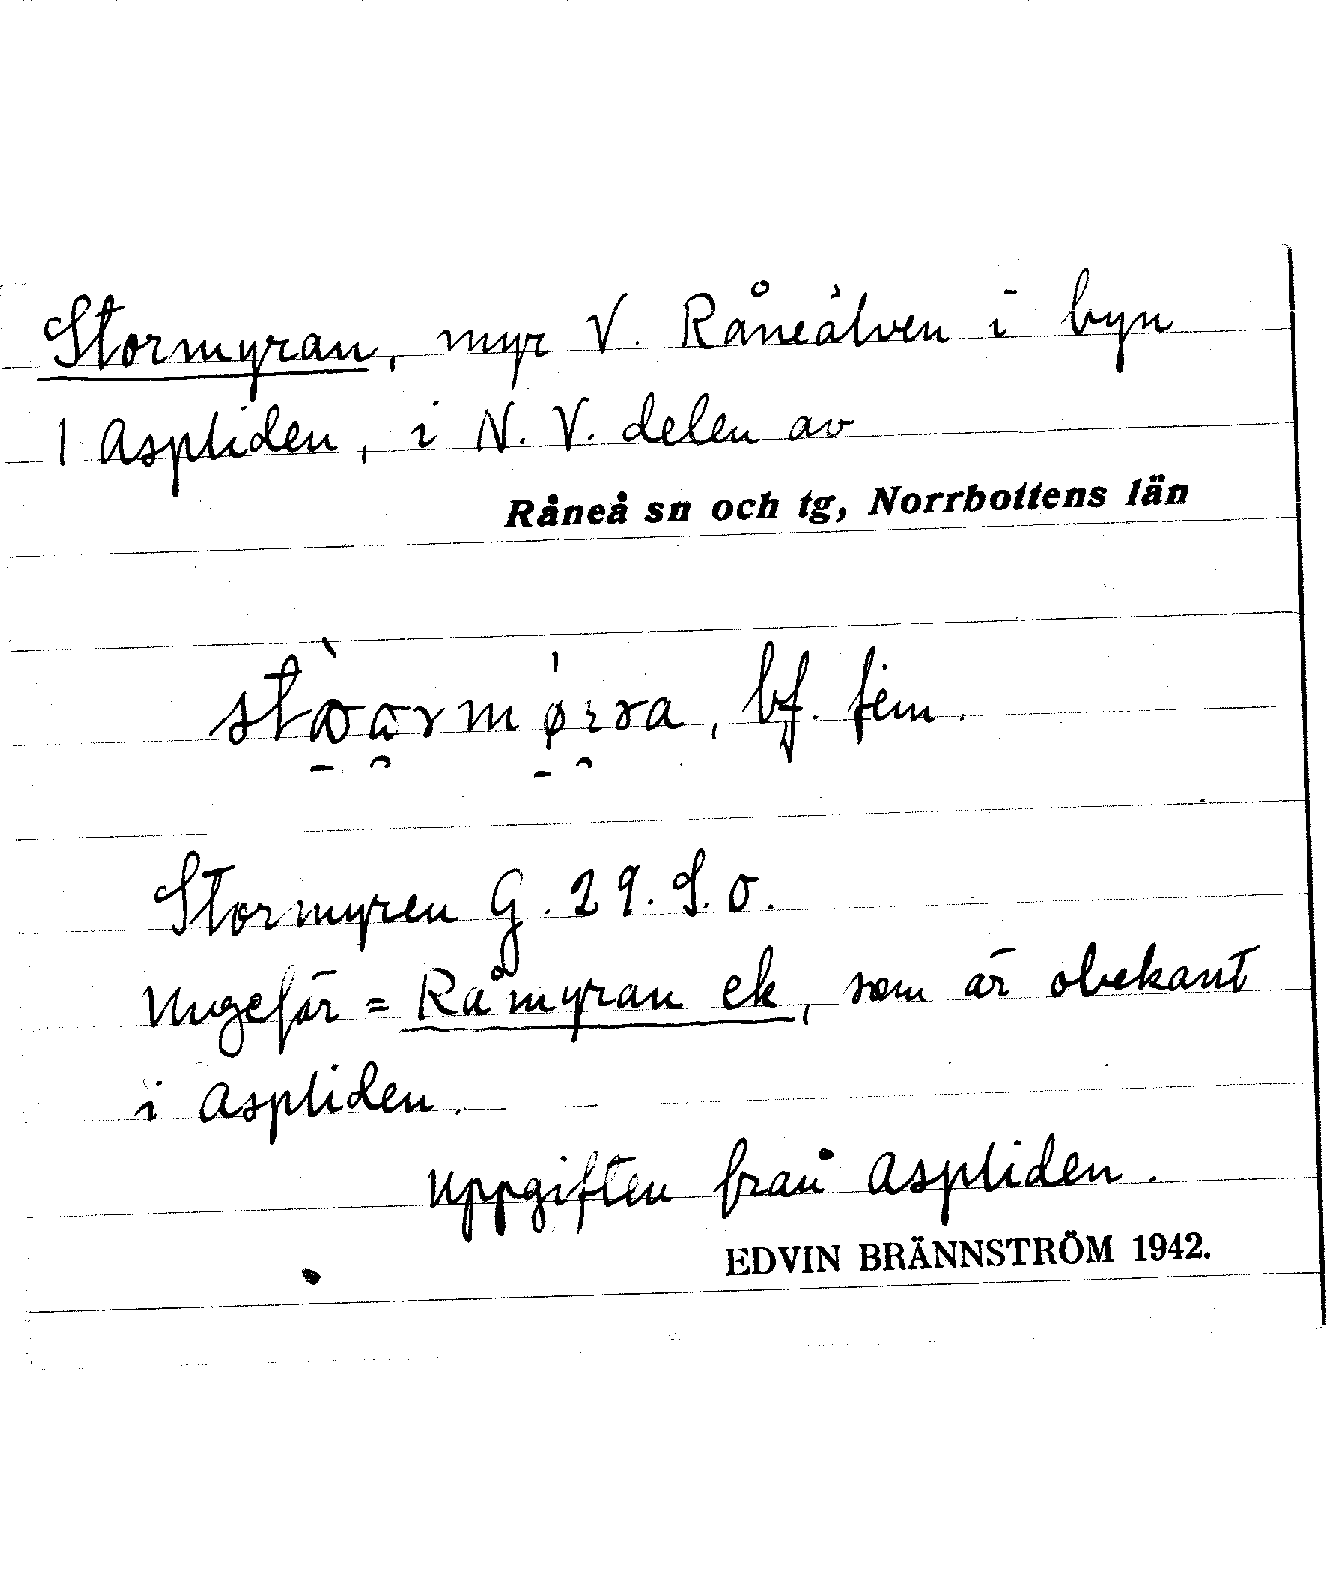 Stormyran, myr V. Råneälven i byn
1 Aspliden, i N. V. delen av
Råneå sn och tg, Norrbottens län
bf. fem.
Stormyren G. 29. S. O.
Ungefär = Råmyran ek, som är obekant
i Aspliden.
Uppgiften från Aspliden.
EDVIN BRÄNNSTRÖM 1942.